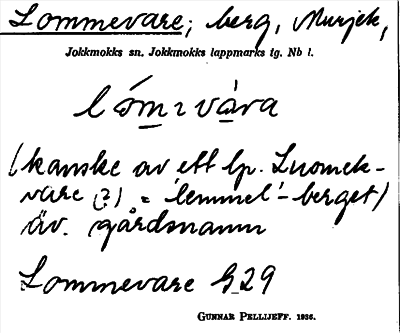 Lommevare; berg, Murjek,
Jokkmokks sn. Jokkmokks lappmarks tg. Nb l.
lóm₂vára
(kanske av ett lp. Luomek-
vare (?) = 'lemmel'-berget)
äv. gårdsnamn
Lommevare G 29
GUNNAR PELLIJEFF. 1936.